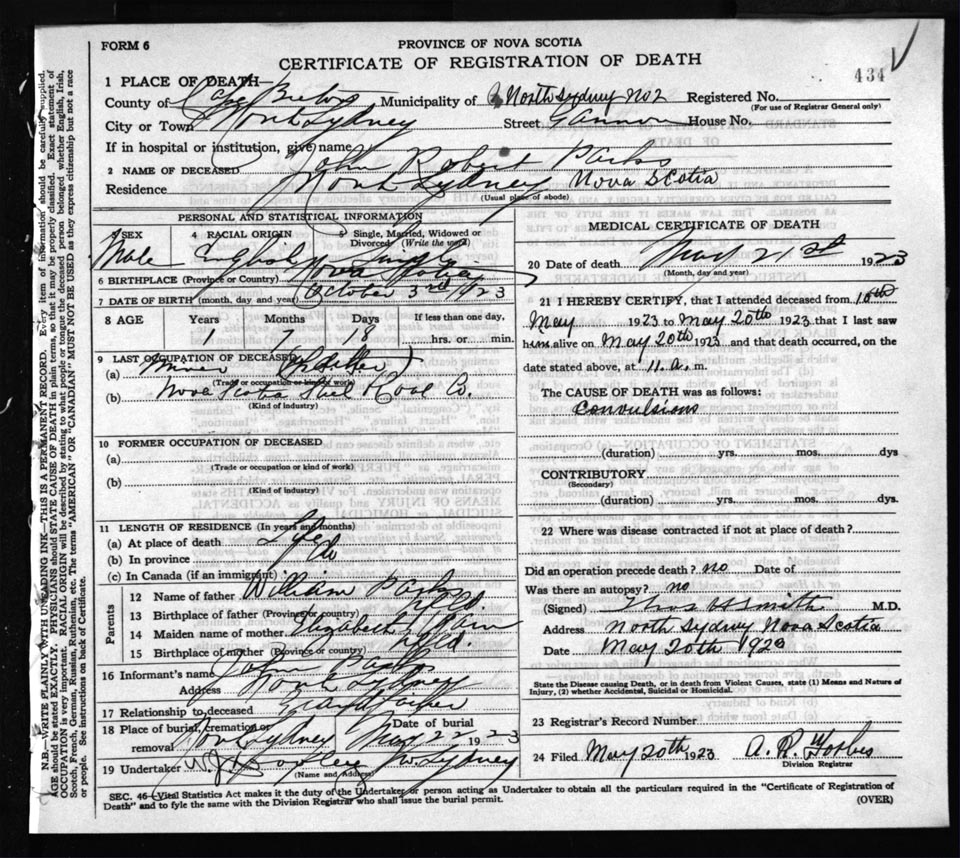 FORM 6
PROVINCE OF NOVA SCOTIA
CERTIFICATE OF REGISTRATION OF DEATH
434
1 PLACE OF DEATH—
County of Cape Breton Municipality of North Sydney No 2 Registered No.
(For use of Registrar General only)
City or Town North Sydney Street Gannon House No.
If in hospital or institution, give name
2 NAME OF DECEASED John Robert Parks
Residence North Sydney Nova Scotia
(Usual place of abode)
PERSONAL AND STATISTICAL INFORMATION
3 SEX 4 RACIAL ORIGIN 5 Single, Married, Widowed or Divorced (Write the word)
Male English Single
6 BIRTHPLACE (Province or Country) Nova Scotia
7 DATE OF BIRTH (month, day and year) October 3rd 1923
8 AGE Years Months Days If less than one day,
1 7 18 hrs. or min.
9 LAST OCCUPATION OF DECEASED
(a) Miner (father)
(Trade or occupation or kind of work)
(b) Nova Scotia Steel & Coal Co.
(Kind of industry)
10 FORMER OCCUPATION OF DECEASED
(a)
(Trade or occupation or kind of work)
(b)
(Kind of industry)
11 LENGTH OF RESIDENCE (In years and months)
(a) At place of death Life
(b) In province Do
(c) In Canada (if an immigrant)
Parents
12 Name of father William Parks
13 Birthplace of father (Province or country) Nfld.
14 Maiden name of mother Elizabeth
15 Birthplace of mother (Province or country) Nfld.
16 Informant's name John Parks
Address North Sydney
17 Relationship to deceased Grandfather
18 Place of burial, cremation or removal North Sydney Date of burial May 22 1923
19 Undertaker W. J. Dooley N. Sydney
(Name and Address)
MEDICAL CERTIFICATE OF DEATH
20 Date of death May 21st 1923
(Month, day and year)
21 I HEREBY CERTIFY, that I attended deceased from 10th
May 1923 to May 20th 1923 that I last saw
him alive on May 20th 1923 and that death occurred, on the
date stated above, at 11. a. m.
The CAUSE OF DEATH was as follows:
Convulsions
(duration) yrs. mos. dys
CONTRIBUTORY
(Secondary)
(duration) yrs. mos. dys.
22 Where was disease contracted if not at place of death?
Did an operation precede death? no Date of
Was there an autopsy? no
(Signed) Thos H Smith M.D.
Address North Sydney Nova Scotia
Date May 20th 1923
State the Disease causing Death, or in death from Violent Causes, state (1) Means and Nature of
Injury, (2) whether Accidental, Suicidal or Homicidal.
23 Registrar's Record Number
24 Filed May 20th 1923 A. R. Forbes
Division Registrar
SEC. 46—(Vital Statistics Act makes it the duty of the Undertaker or person acting as Undertaker to obtain all the particulars required in the "Certificate of Registration of
Death" and to fyle the same with the Division Registrar who shall issue the burial permit. (OVER)
N.B.—WRITE PLAINLY WITH UNFADING INK—THIS IS A PERMANENT RECORD. Every item of information should be carefully supplied.
AGE should be stated EXACTLY. PHYSICIANS should STATE CAUSE OF DEATH in plain terms, so that it may be properly classified. Exact statement of
OCCUPATION is very important. RACIAL ORIGIN will be described by stating to what people or tongue the deceased person belonged whether English, Irish,
Scotch, French, German, Russian, Ruthenian, etc. The terms "AMERICAN" OR "CANADIAN MUST NOT BE USED as they express citizenship but not a race
or people. See instructions on back of Certificate.